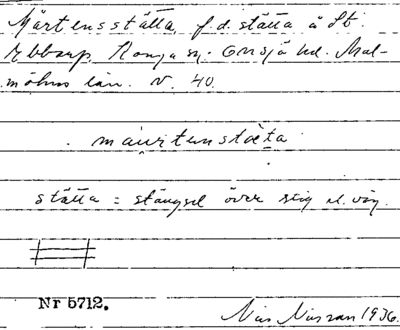 Mårtensstätta, f.d. stätta å St.
Ebbarp Konga sn. Onsjö hd. Mal-
möhus län. V. 40.
maúrtenstæta
stätta = stängsel över stig el. väg.
Nr 5712.
Nils Nilsson 1936.